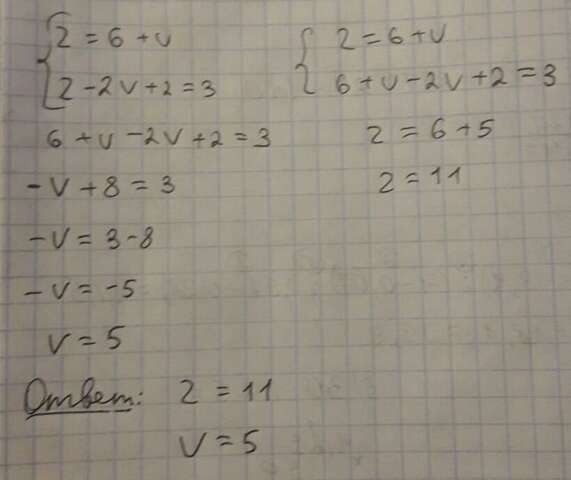 z = 6 + v
z - 2v + 2 = 3
6 + v - 2v + 2 = 3
-v + 8 = 3
-v = 3 - 8
-v = -5
v = 5
z = 6 + v
6 + v - 2v + 2 = 3
z = 6 + 5
z = 11
Ответ: z = 11
v = 5